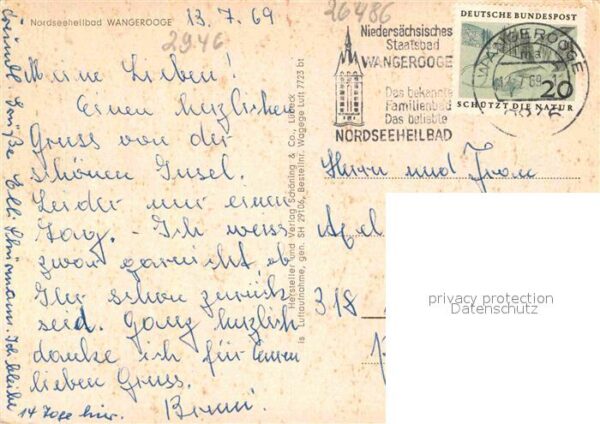 Nordseeheilbad WANGEROOGE
13.7.69
29.46
26486
Meine Lieben!
Einen herzlichen
Gruss von der
schönen Insel.
Leider nur einen
Tag. - Ich weiss
zwar garnicht, ob
Ihr schon zurück
seid. Ganz herzlich
danke ich für Euren
lieben Gruss.
14 Tage hier.
Freundl. Grüße Elli
Ich bleibe
Hersteller und Verlag Schöning & Co., Lübeck
is Luftaufnahme, gen. SH 29106, Bestellnr. Wagege Luft 7723 bt
Niedersächsisches
Staatsbad
WANGEROOGE
Das bekannte
Familienbad
Das beliebte
NORDSEEHEILBAD
DEUTSCHE BUNDESPOST
20
SCHÜTZT DIE NATUR
WANGEROOGE
Herrn und Frau
318
privacy protection
Datenschutz